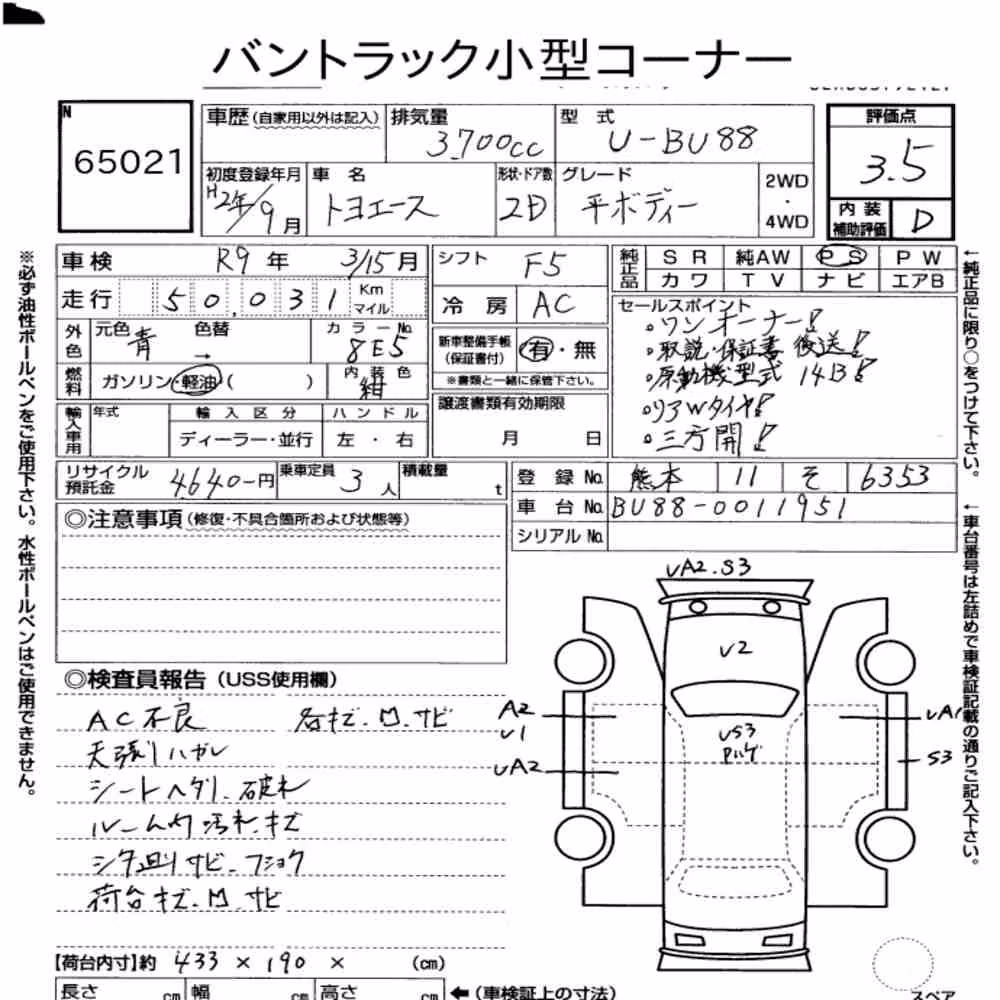 バントラック小型コーナー
N
65021
車歴 (自家用以外は記入)
排気量
3,700cc
型式
U-BU88
評価点
3.5
内装
補助評価
D
初度登録年月
H2年/9月
車名
トヨエース
形状・ドア数
2D
グレード
平ボディー
2WD
・
4WD
車検 R9年 3/15月
走行 50,031 Km マイル
シフト F5
冷房 AC
純正品
SR 純AW PS PW
カワ TV ナビ エアB
外色
元色 青
色替 →
カラーNo. 8E5
燃料
ガソリン・軽油( )
内装色 紺
新車整備手帳
(保証書付)
有・無
※書類と一緒に保管下さい。
セールスポイント
。ワンオーナー!
。取説・保証書 後送!
。原動機型式 14B!
。リアWタイヤ!
。三方開!
輸入車用
年式
輸入区分
ディーラー・並行
ハンドル
左・右
譲渡書類有効期限
月 日
リサイクル
預託金
4640-円
乗車定員
3人
積載量
t
登録No. 熊本 11 そ 6353
車台No. BU88-0011951
シリアルNo.
◎注意事項 (修復・不具合箇所および状態等)
◎検査員報告 (USS使用欄)
AC不良 各キズ.凹.サビ
天張りハガレ
シートヘタリ.破れ
ルーム内汚れ.キズ
シタ廻りサビ.フショク
荷台キズ.凹.サビ
UA2.S3
U2
US3
Pハゲ
A2
U1
UA2
UA1
S3
【荷台内寸】約 433 × 190 × (cm)
長さ cm 幅 cm 高さ cm
←(車検証上の寸法)
スペア
※必ず油性ボールペンをご使用下さい。水性ボールペンはご使用できません。
←純正品に限り○をつけて下さい。
←車台番号は左詰めで車検証記載の通りご記入下さい。